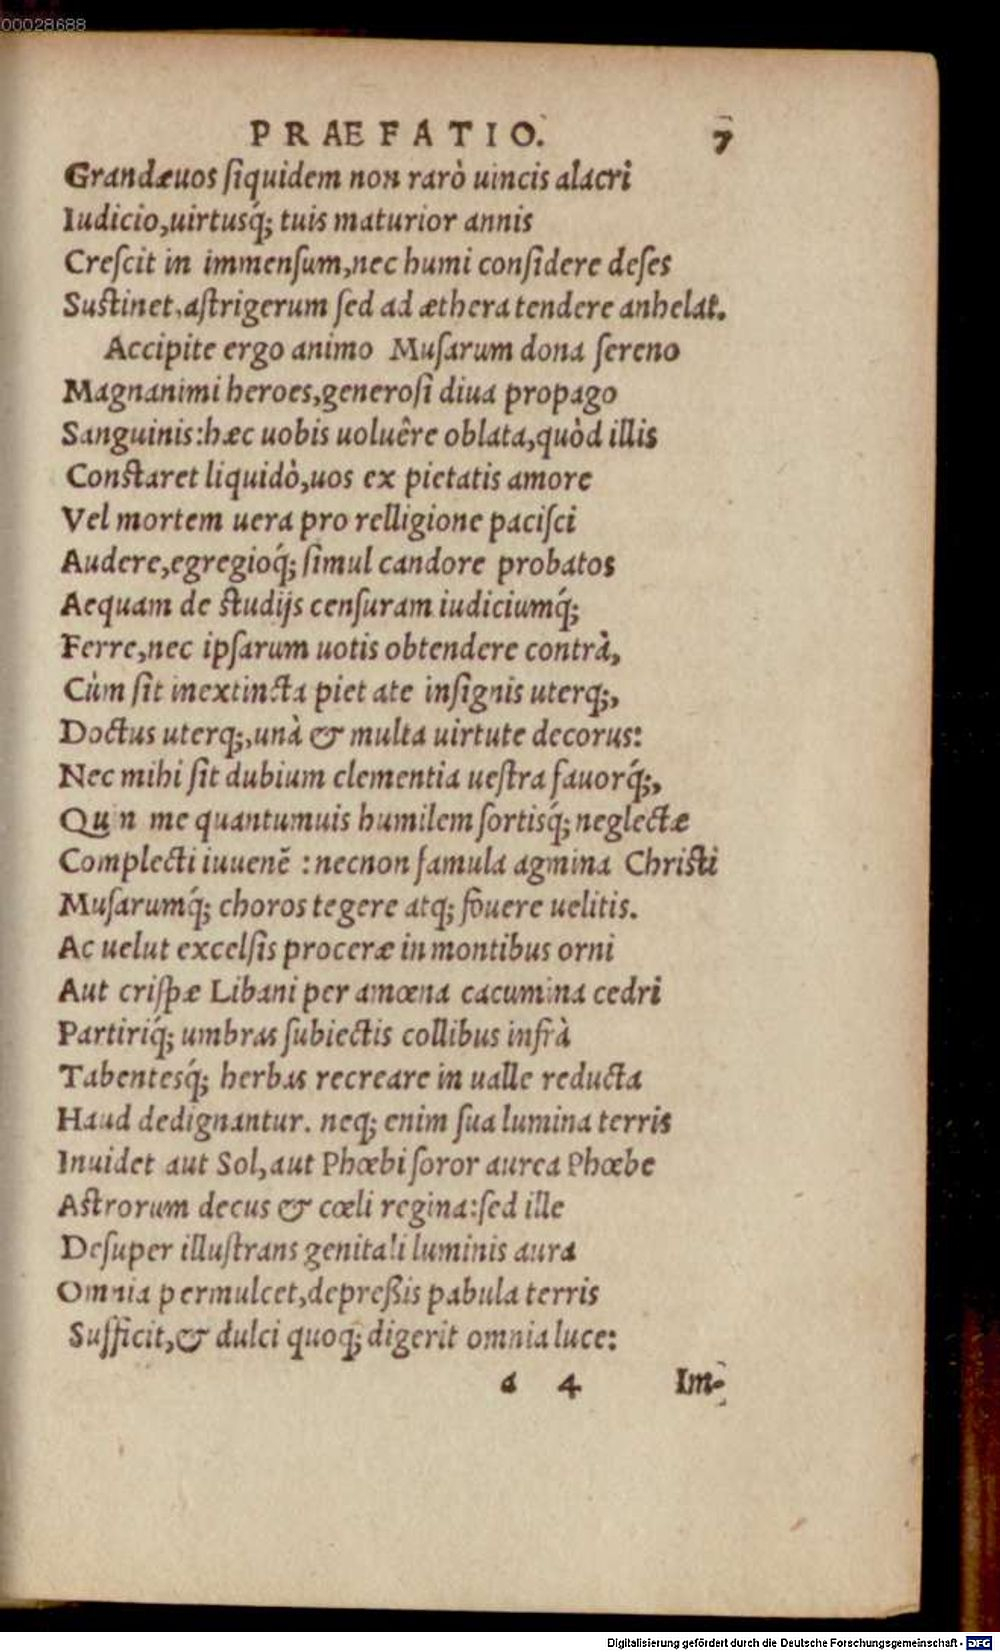 00028688
PRAEFATIO. 7
Grandæuos ſiquidem non rarò uincis alacri
Iudicio,uirtusq́; tuis maturior annis
Creſcit in immenſum,nec humi conſidere deſes
Suſtinet,aſtrigerum ſed ad æthera tendere anhelat.
Accipite ergo animo Muſarum dona ſereno
Magnanimi heroes,generoſi diua propago
Sanguinis:hæc uobis uoluêre oblata,quòd illis
Conſtaret liquidò,uos ex pietatis amore
Vel mortem uera pro relligione paciſci
Audere,egregioq́; ſimul candore probatos
Aequam de ſtudijs cenſuram iudiciumq́;
Ferre,nec ipſarum uotis obtendere contrà,
Cùm ſit inextincta piet ate inſignis uterq;,
Doctus uterq;,unà & multa uirtute decorus:
Nec mihi ſit dubium clementia ueſtra fauorq́;,
Qu n me quantumuis humilem ſortisq́; neglectæ
Complecti iuuenẽ : necnon famula agmina Chriſti
Muſarumq́; choros tegere atq; fouere uelitis.
Ac uelut excelſis proceræ in montibus orni
Aut criſpæ Libani per amœna cacumina cedri
Partiriq́; umbras ſubiectis collibus infrà
Tabentesq́; herbas recreare in ualle reducta
Haud dedignantur. neq; enim ſua lumina terris
Inuidet aut Sol,aut Phœbi ſoror aurea Phœbe
Aſtrorum decus & cœli regina:ſed ille
Deſuper illuſtrans genitali luminis aura
Omnia permulcet,depreßis pabula terris
Sufficit,& dulci quoq; digerit omnia luce:
a 4 Im-
Digitalisierung gefördert durch die Deutsche Forschungsgemeinschaft - DFG